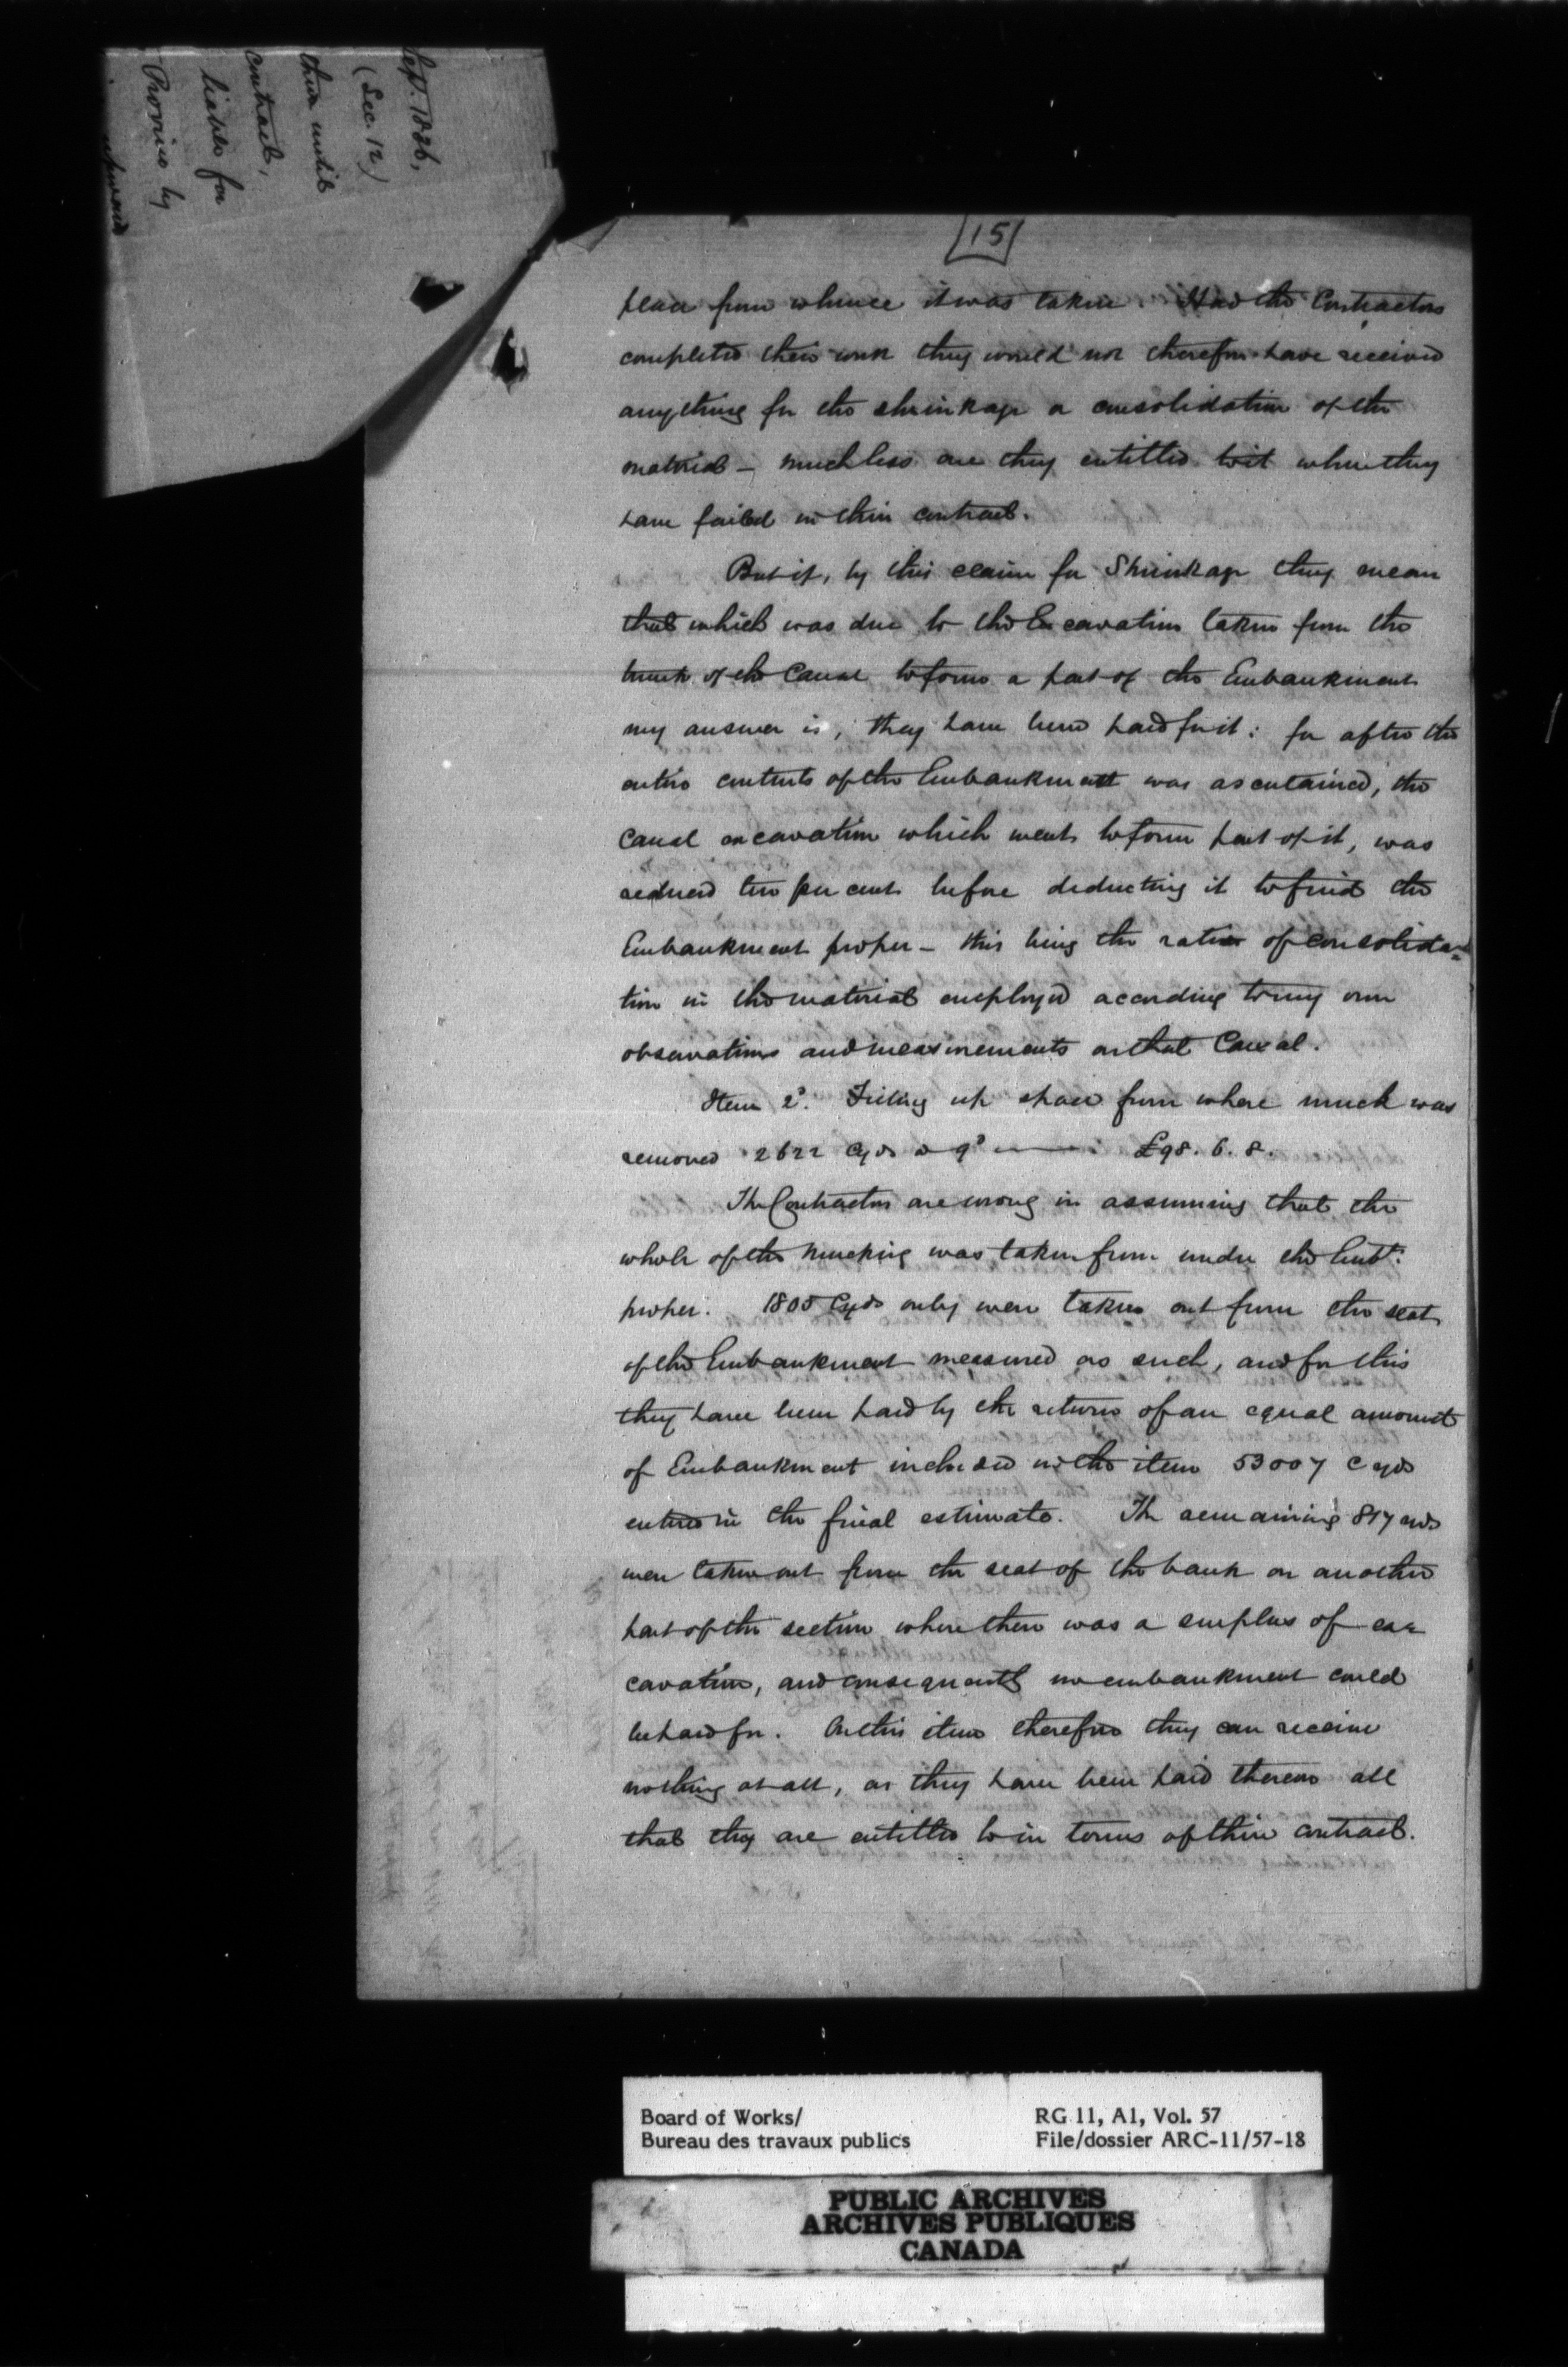 Sept. 1886,
(Sec. 12)
them until
contract,
liable for
Proviso by
15
place from whence it was taken. Had the Contractors
completed their work they would not therefore have received
anything for the shrinkage or consolidation of the
material – much less are they entitled to it when they
have failed in their contract.
But if, by this claim for Shrinkage they mean
that which was due to the Excavation taken from the
trunk of the Canal to form a part of the Embankment
my answer is, they have been paid for it: for after the
entire contents of the Embankment was ascertained, the
Canal excavation which went to form part of it, was
reduced ten per cent before deducting it to find the
Embankment proper – this being the ratio of consolida=
tion in the material employed according to my own
observations and measurements on that Canal.
Item 2d. Filling up space from where muck was
removed 2622 Cyds @ 9d — £98. 6. 8.
The Contractors are wrong in assuming that the
whole of the mucking was taken from under the Embt.
proper. 1805 Cyds only were taken out from the seat
of the Embankment measured as such, and for this
they have been paid by the return of an equal amount
of Embankment included in the item 53007 Cyds
entered in the final estimate. The remaining 817 yds
were taken out from the seat of the bank on another
part of the section where there was a surplus of ex=
cavation, and consequently no embankment could
be paid for. On this item therefore they can receive
nothing at all, as they have been paid thereon all
that they are entitled to in terms of their contract.
Board of Works/
Bureau des travaux publics
RG 11, A1, Vol. 57
File/dossier ARC-11/57-18
PUBLIC ARCHIVES
ARCHIVES PUBLIQUES
CANADA